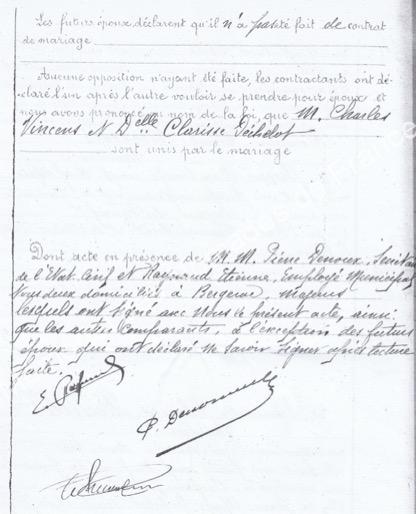 Les futurs époux déclarent qu'il n'a pas été fait de contrat
de mariage
Aucune opposition n'ayant été faite, les contractants ont dé-
claré l'un après l'autre vouloir se prendre pour époux et
nous avons prononcé au nom de la loi, que M. Charles
Vincens et Delle Clarisse Péchelot
sont unis par le mariage
Dont acte en présence de MM. Pierre Denoux, Secrétaire
de l'Etat-Civil et Raynaud Etienne, Employé Municipal
Tous deux domiciliés à Bergerac, majeurs
lesquels ont signé avec nous le présent acte, ainsi
que les autres comparants, à l'exception des futurs
époux qui ont déclaré ne savoir signer après lecture
faite.